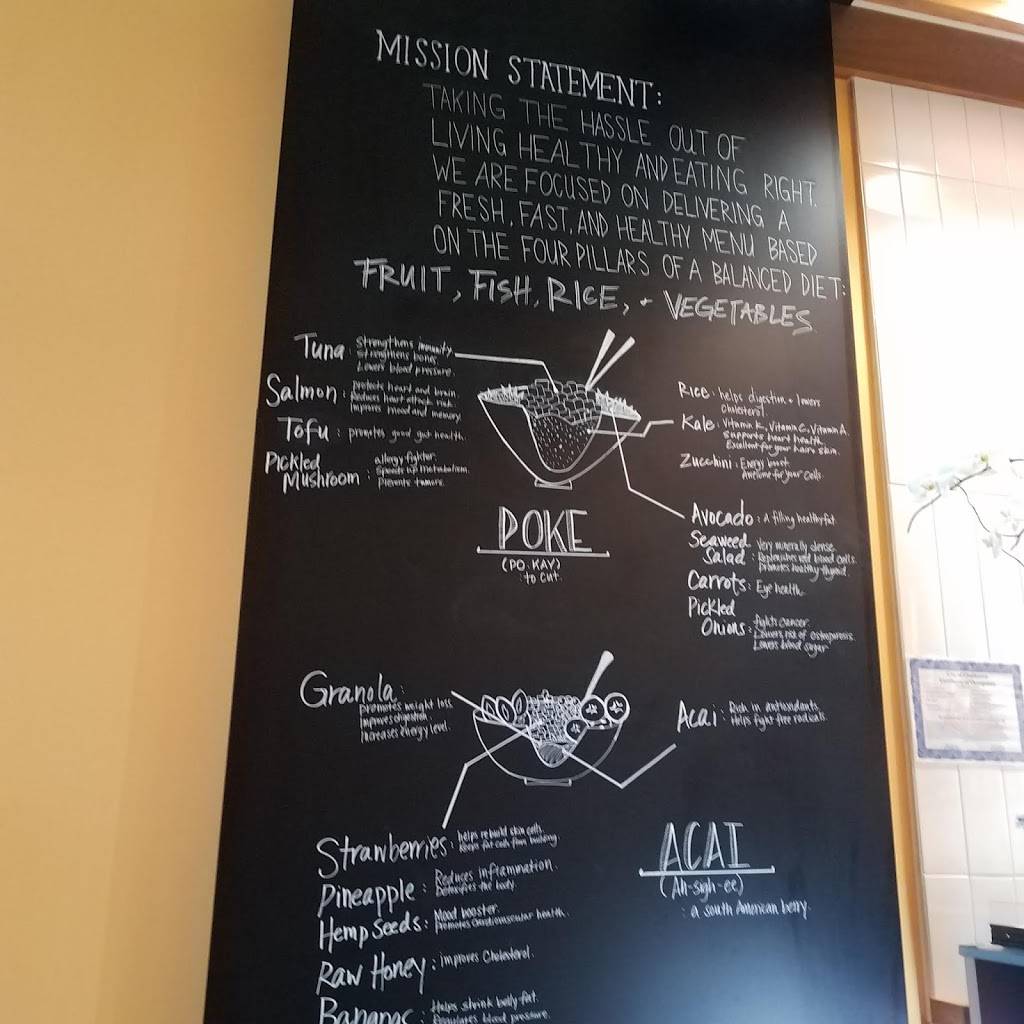 MISSION STATEMENT:
TAKING THE HASSLE OUT OF
LIVING HEALTHY AND EATING RIGHT.
WE ARE FOCUSED ON DELIVERING A
FRESH, FAST, AND HEALTHY MENU BASED
ON THE FOUR PILLARS OF A BALANCED DIET:
FRUIT, FISH, RICE, + VEGETABLES
Tuna: Strengthens immunity.
Strengthens bones.
Lowers blood pressure.
Salmon: protects heart and brain.
Reduces heart attack risk.
Improves mood and memory.
Tofu: promotes good gut health.
Pickled
Mushroom: allergy fighter.
Speeds up metabolism.
Prevents tumors.
Rice: helps digestion + lowers
cholesterol.
Kale: Vitamin K, Vitamin C, Vitamin A.
supports heart health.
Excellent for your hair + skin.
Zucchini: Energy boost
Awesome for your cells
Avocado: A filling healthy fat.
Seaweed
Salad: Very minerally dense.
Replenishes red blood cells.
promotes healthy thyroid.
Carrots: Eye health.
Pickled
Onions: fights cancer.
Lowers risk of osteoporosis.
Lowers blood sugar
POKE
(PO.KAY)
: to cut.
Granola:
promotes weight loss
Improves digestion.
Increases energy level.
Acai: Rich in antioxidants.
Helps fight free radicals.
Strawberries: helps rebuild skin cells.
Keeps fat cells from building.
Pineapple: Reduces inflammation.
Detoxifies the body
Hemp Seeds: Mood booster.
Promotes cardiovascular health.
Raw Honey: improves Cholesterol.
Bananas: Helps shrink belly fat.
Regulates blood pressure.
ACAI
(Ah-sigh-ee)
: a South American berry.